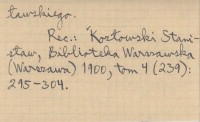 tawskiego.
Rec.: Kozłowski Stani-
sław, Biblioteka Warszawska
(Warszawa) 1900, tom 4 (239):
295-304.